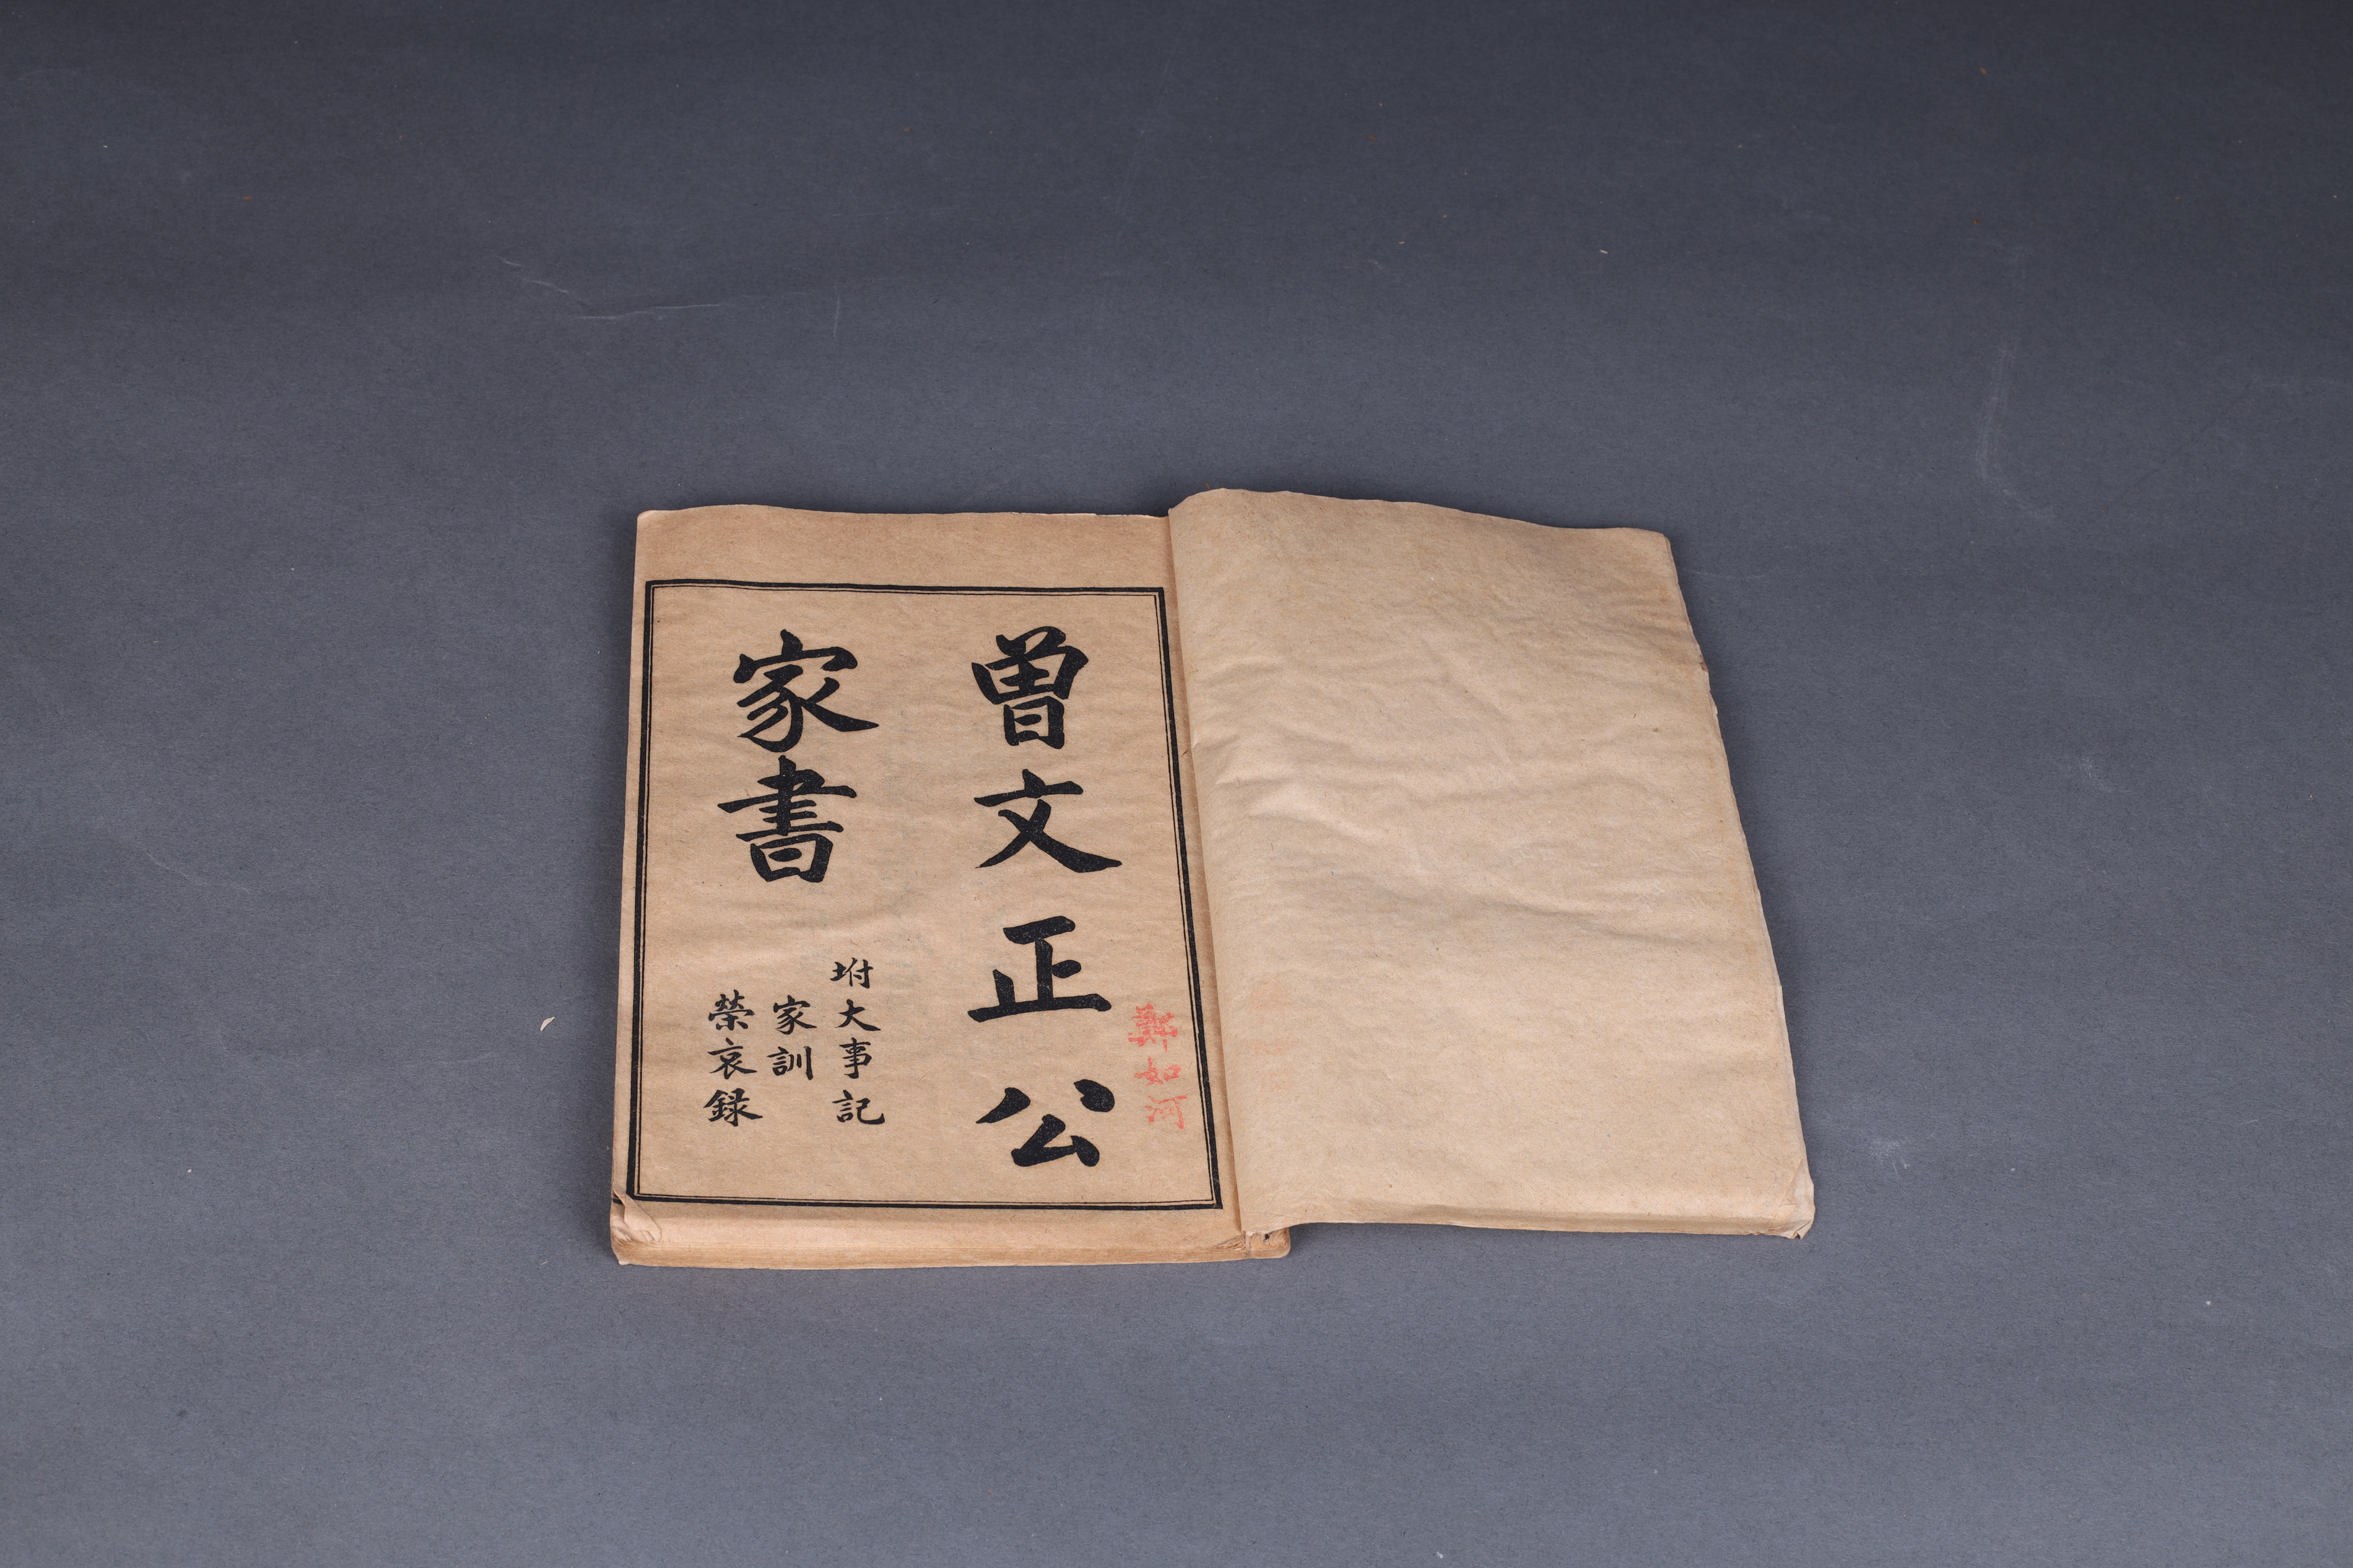 曾文正公
家書
坿大事記
家訓
榮哀録
鄭如河